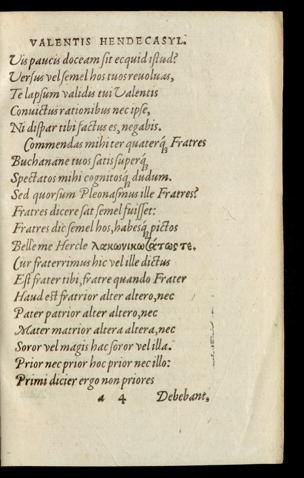 VALENTIS HENDECASYL.
Uis paucis doceam sit ecquid istud?
Uersus vel semel hos tuos reuoluas,
Te lapsum validis tui Ualentis
Conuictus rationibus nec ipse,
Ni dispar tibi factus es, negabis.
Commendas mihi ter quaterq́; Fratres
Buchanane tuos satis superq́;
Spectatos mihi cognitosq́; dudum.
Sed quorsum Pleonasmus ille Fratres?
Fratres dicere sat semel fuisset:
Fratres dic semel hos, habesq́; pictos
Belle me Hercle λακωνικωτάτως τε.
Cur fraterrimus hic vel ille dictus
Est frater tibi, fratre quando Frater
Haud est fratrior alter altero, nec
Pater patrior alter altero, nec
Mater matrior altera altera, nec
Soror vel magis hac soror vel illa.
Prior nec prior hoc prior nec illo:
Primi dicier ergo non priores
a 4 Debebant,